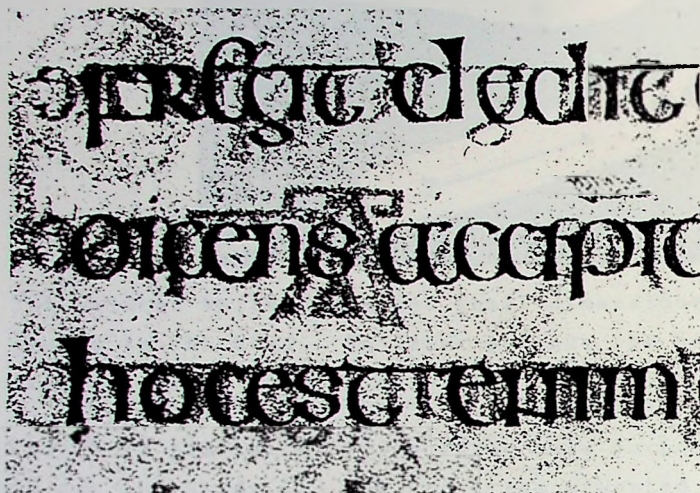 fregit dedit
dicens accipit
hocest enim